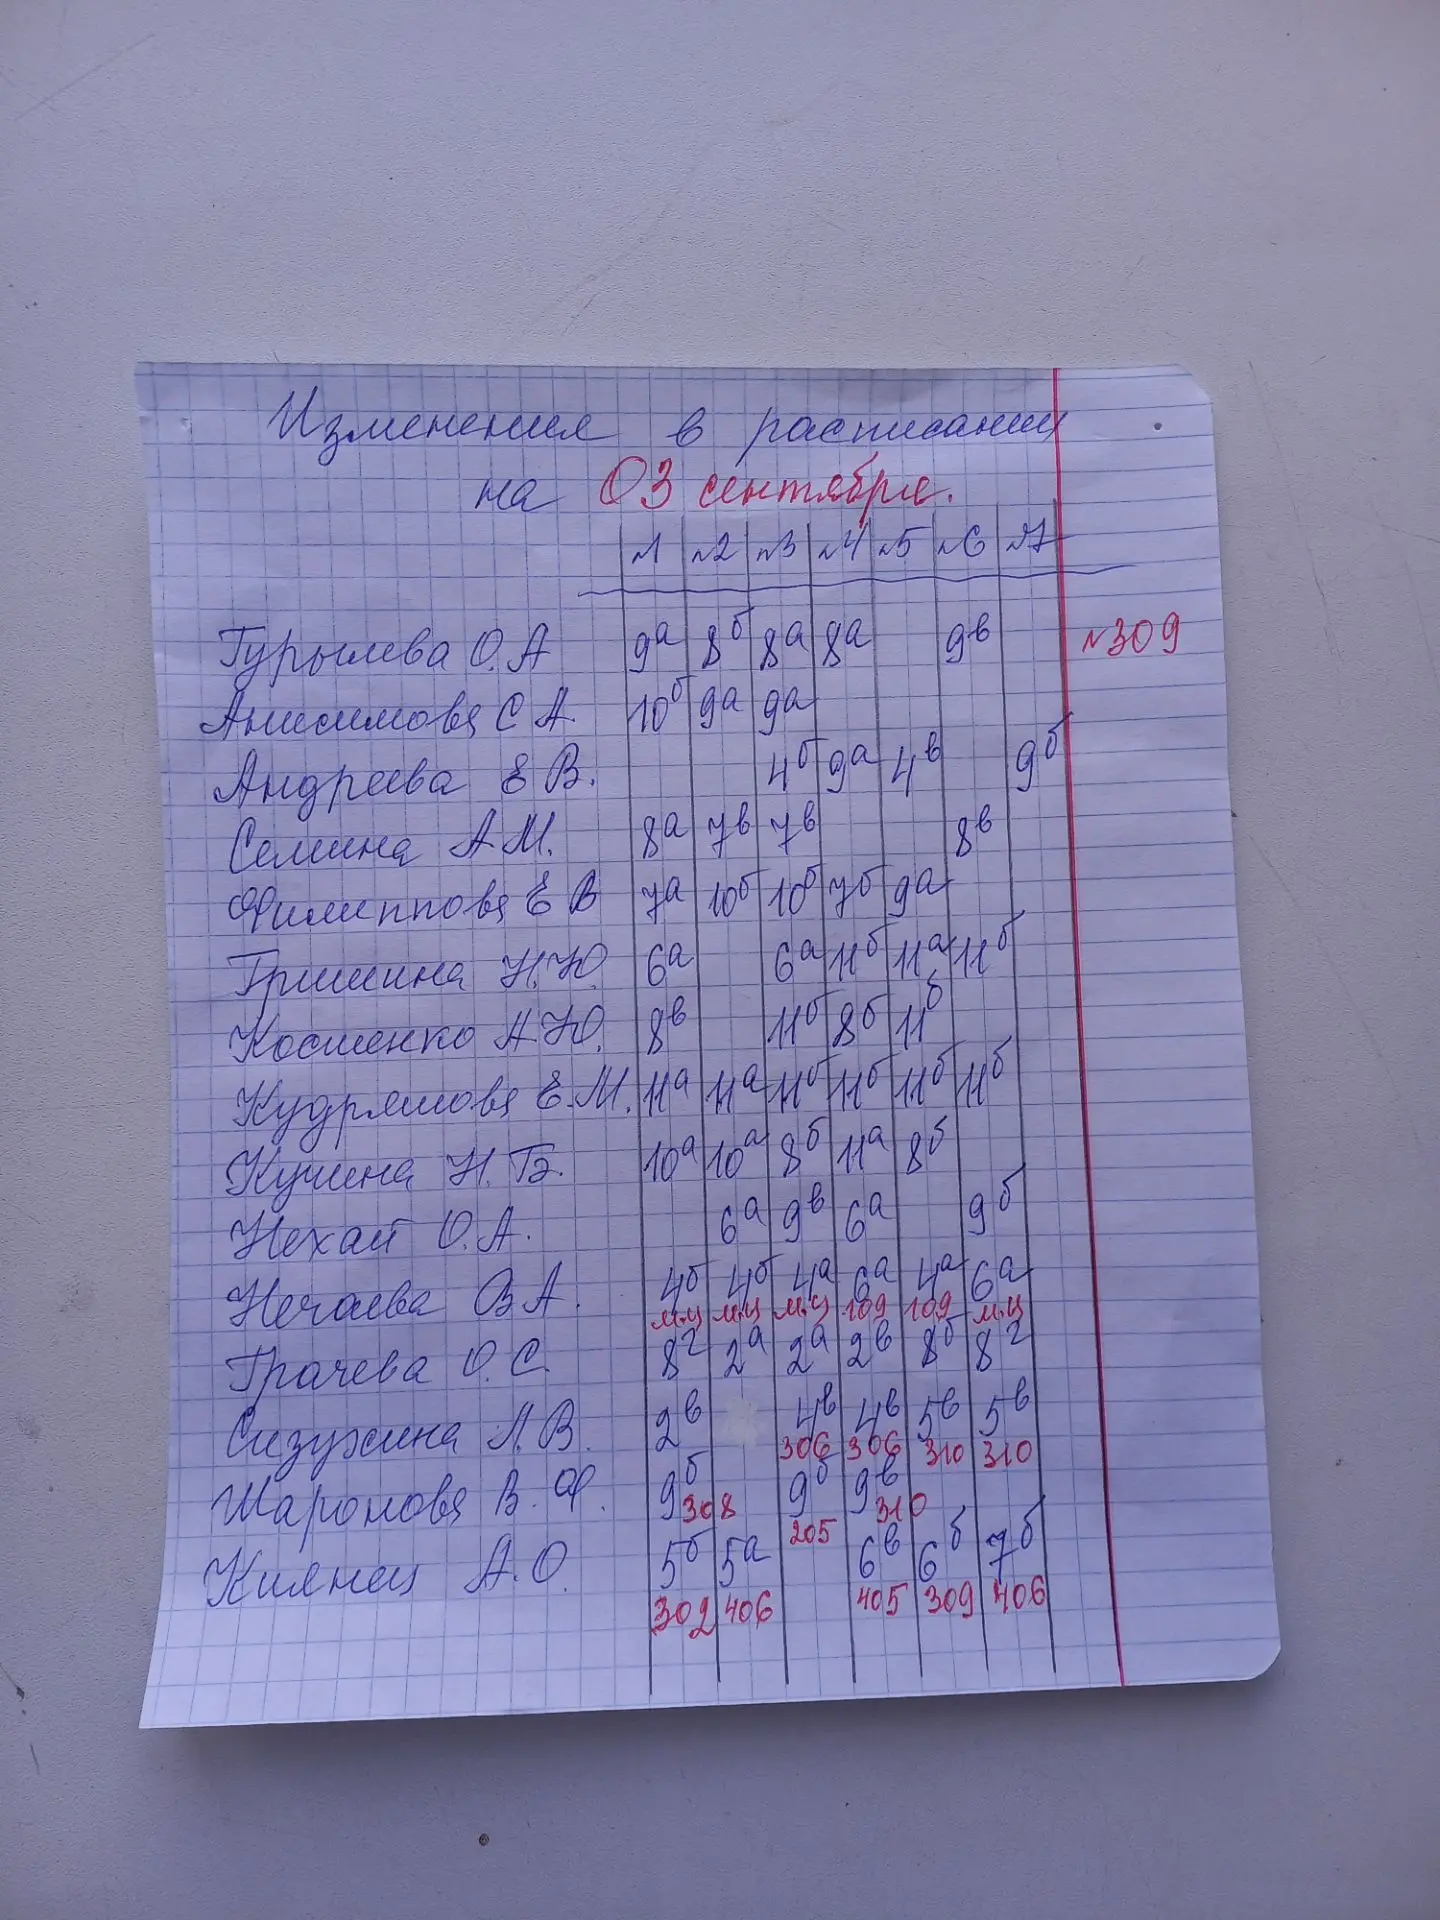 Изменения в расписании
на 03 сентября.
№1 №2 №3 №4 №5 №6 №7
Гурылева О.А 9а 8б 8а 8а 9в №309
Анисимова С А. 10б 9а 9а
Андреева Е В. 4б 9а 4в 9б
Семина А.М. 8а 7в 7в 8в
Филиппова Е В 7а 10б 10б 7б 9а
Гришина Н.Ю. 6а 6а 11б 11а 11б
Костенко А.Ю. 8в 11б 8б 11б
Кудряшова Е.М. 11а 11а 11б 11б 11б 11б
Кучина Н.Б. 10а 10а 8б 11а 8б
Нехай О.А. 6а 9в 6а 9б
Нечаева В А. 4б 4б 4а 6а 4а 6а
м.ц м.ц м.ц 109 109 м.ц
Грачева О.С. 8г 2а 2а 2в 8б 8г
Сизухина Л.В. 2в 4в 4в 5в 5в
306 306 310 310
Шаронова В.Ф. 9б 9б 9в
308 205 310
Киянец А.О. 5б 5а 6в 6б 7б
302 406 405 309 406